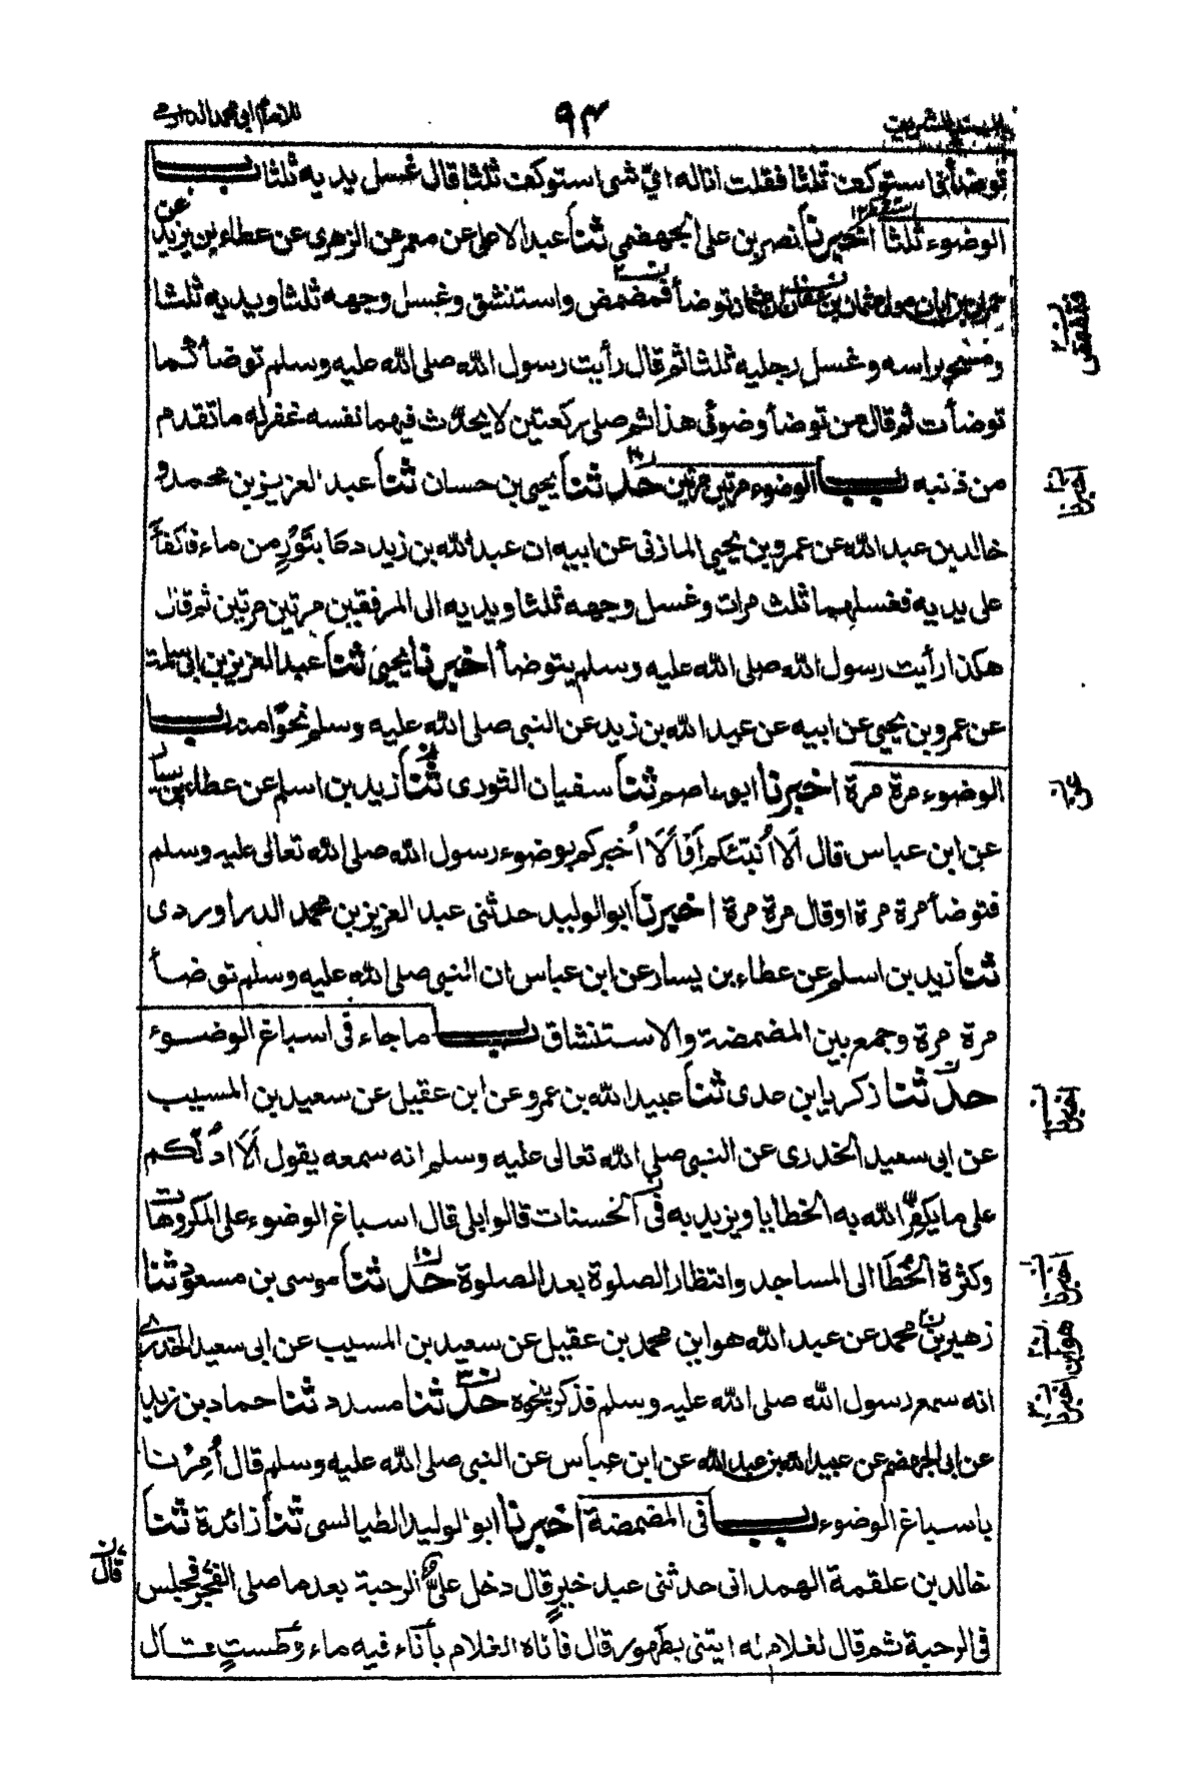 للامام ابی محمد الدارمی
۹۴
المسند الشریف
توضأ فاستوكف ثلثا فقلت اناله ای شی استوكف ثلثا قال غسل يديه ثلثا باب
الوضوء ثلثا اخبرنا نصر بن علی الجهضمی ثنا عبد الاعلى عن معمر عن الزهری عن عطاء بن يزيد عن
حمران بن ابان مولی عثمان بن عفان ان عثمان توضأ فمضمض واستنشق وغسل وجهه ثلثا ويديه ثلثا
ومسح براسه وغسل رجليه ثلثا ثم قال رأيت رسول الله صلى الله عليه وسلم توضأ كما
توضأت ثم قال من توضأ وضوئی هذا ثم صلى ركعتين لا يحدث فيهما نفسه غفر له ما تقدم
من ذنبه باب الوضوء مرتين مرتين حدثنا يحيى بن حسان ثنا عبد العزيز بن محمد و
خالد بن عبد الله عن عمرو بن يحيى المازنی عن ابيه ان عبد الله بن زيد دعا بتور من ماء فاكفأ
على يديه فغسلهما ثلث مرات وغسل وجهه ثلثا ويديه الى المرفقين مرتين مرتين ثم قال
هكذا رأيت رسول الله صلى الله عليه وسلم يتوضأ اخبرنا يحيى ثنا عبد العزيز بن ابی سلمة
عن عمرو بن يحيى عن ابيه عن عبد الله بن زيد عن النبی صلى الله عليه وسلم نحوا منه باب
الوضوء مرة مرة اخبرنا ابو عاصم ثنا سفيان الثوری ثنا زيد بن اسلم عن عطاء بن يسار
عن ابن عباس قال اَلا اُنبّئكم اَوْ اَلَا اُخبركم بوضوء رسول الله صلى الله تعالى عليه وسلم
فتوضأ مرة مرة او قال مرة مرة اخبرنا ابو الوليد حدثنی عبد العزيز بن محمد الدراوردی
ثنا زيد بن اسلم عن عطاء بن يسار عن ابن عباس ان النبی صلى الله عليه وسلم توضأ
مرة مرة وجمع بين المضمضة والاستنشاق باب ما جاء فی اسباغ الوضوء
حدثنا زكريا بن عدی ثنا عبيد الله بن عمرو عن ابن عقيل عن سعيد بن المسيب
عن ابی سعيد الخدری عن النبی صلى الله تعالى عليه وسلم انه سمعه يقول اَلَا ادُلّكم
على ما يكفّر الله به الخطايا ويزيد به فی الحسنات قالوا بلى قال اسباغ الوضوء على المكروهات
وكثرة الخُطَا الى المساجد وانتظار الصلوة بعد الصلوة حدثنا موسى بن مسعود ثنا
زهير بن محمد عن عبد الله هو ابن محمد بن عقيل عن سعيد بن المسيب عن ابی سعيد الخدری
انه سمع رسول الله صلى الله عليه وسلم فذكر بنحوه حدثنا مسدد ثنا حماد بن زيد
عن ابی الجهضم عن عبيد الله بن عبد الله عن ابن عباس عن النبی صلى الله عليه وسلم قال اُمِرْنا
باسباغ الوضوء باب فی المضمضة اخبرنا ابو الوليد الطيالسی ثنا زائدة ثنا
خالد بن علقمة الهمدانی حدثنی عبد خير قال دخل علیّ الرحبة بعد ما صلى الفجر فجلس
فی الرحبة ثم قال لغلام له ايتنی بطهور قال فأتاه الغلام بأناء فيه ماء وطست قال
اخبرنا
اخبرنا
اخبرنا
هو ابن
اخبرنا
قال